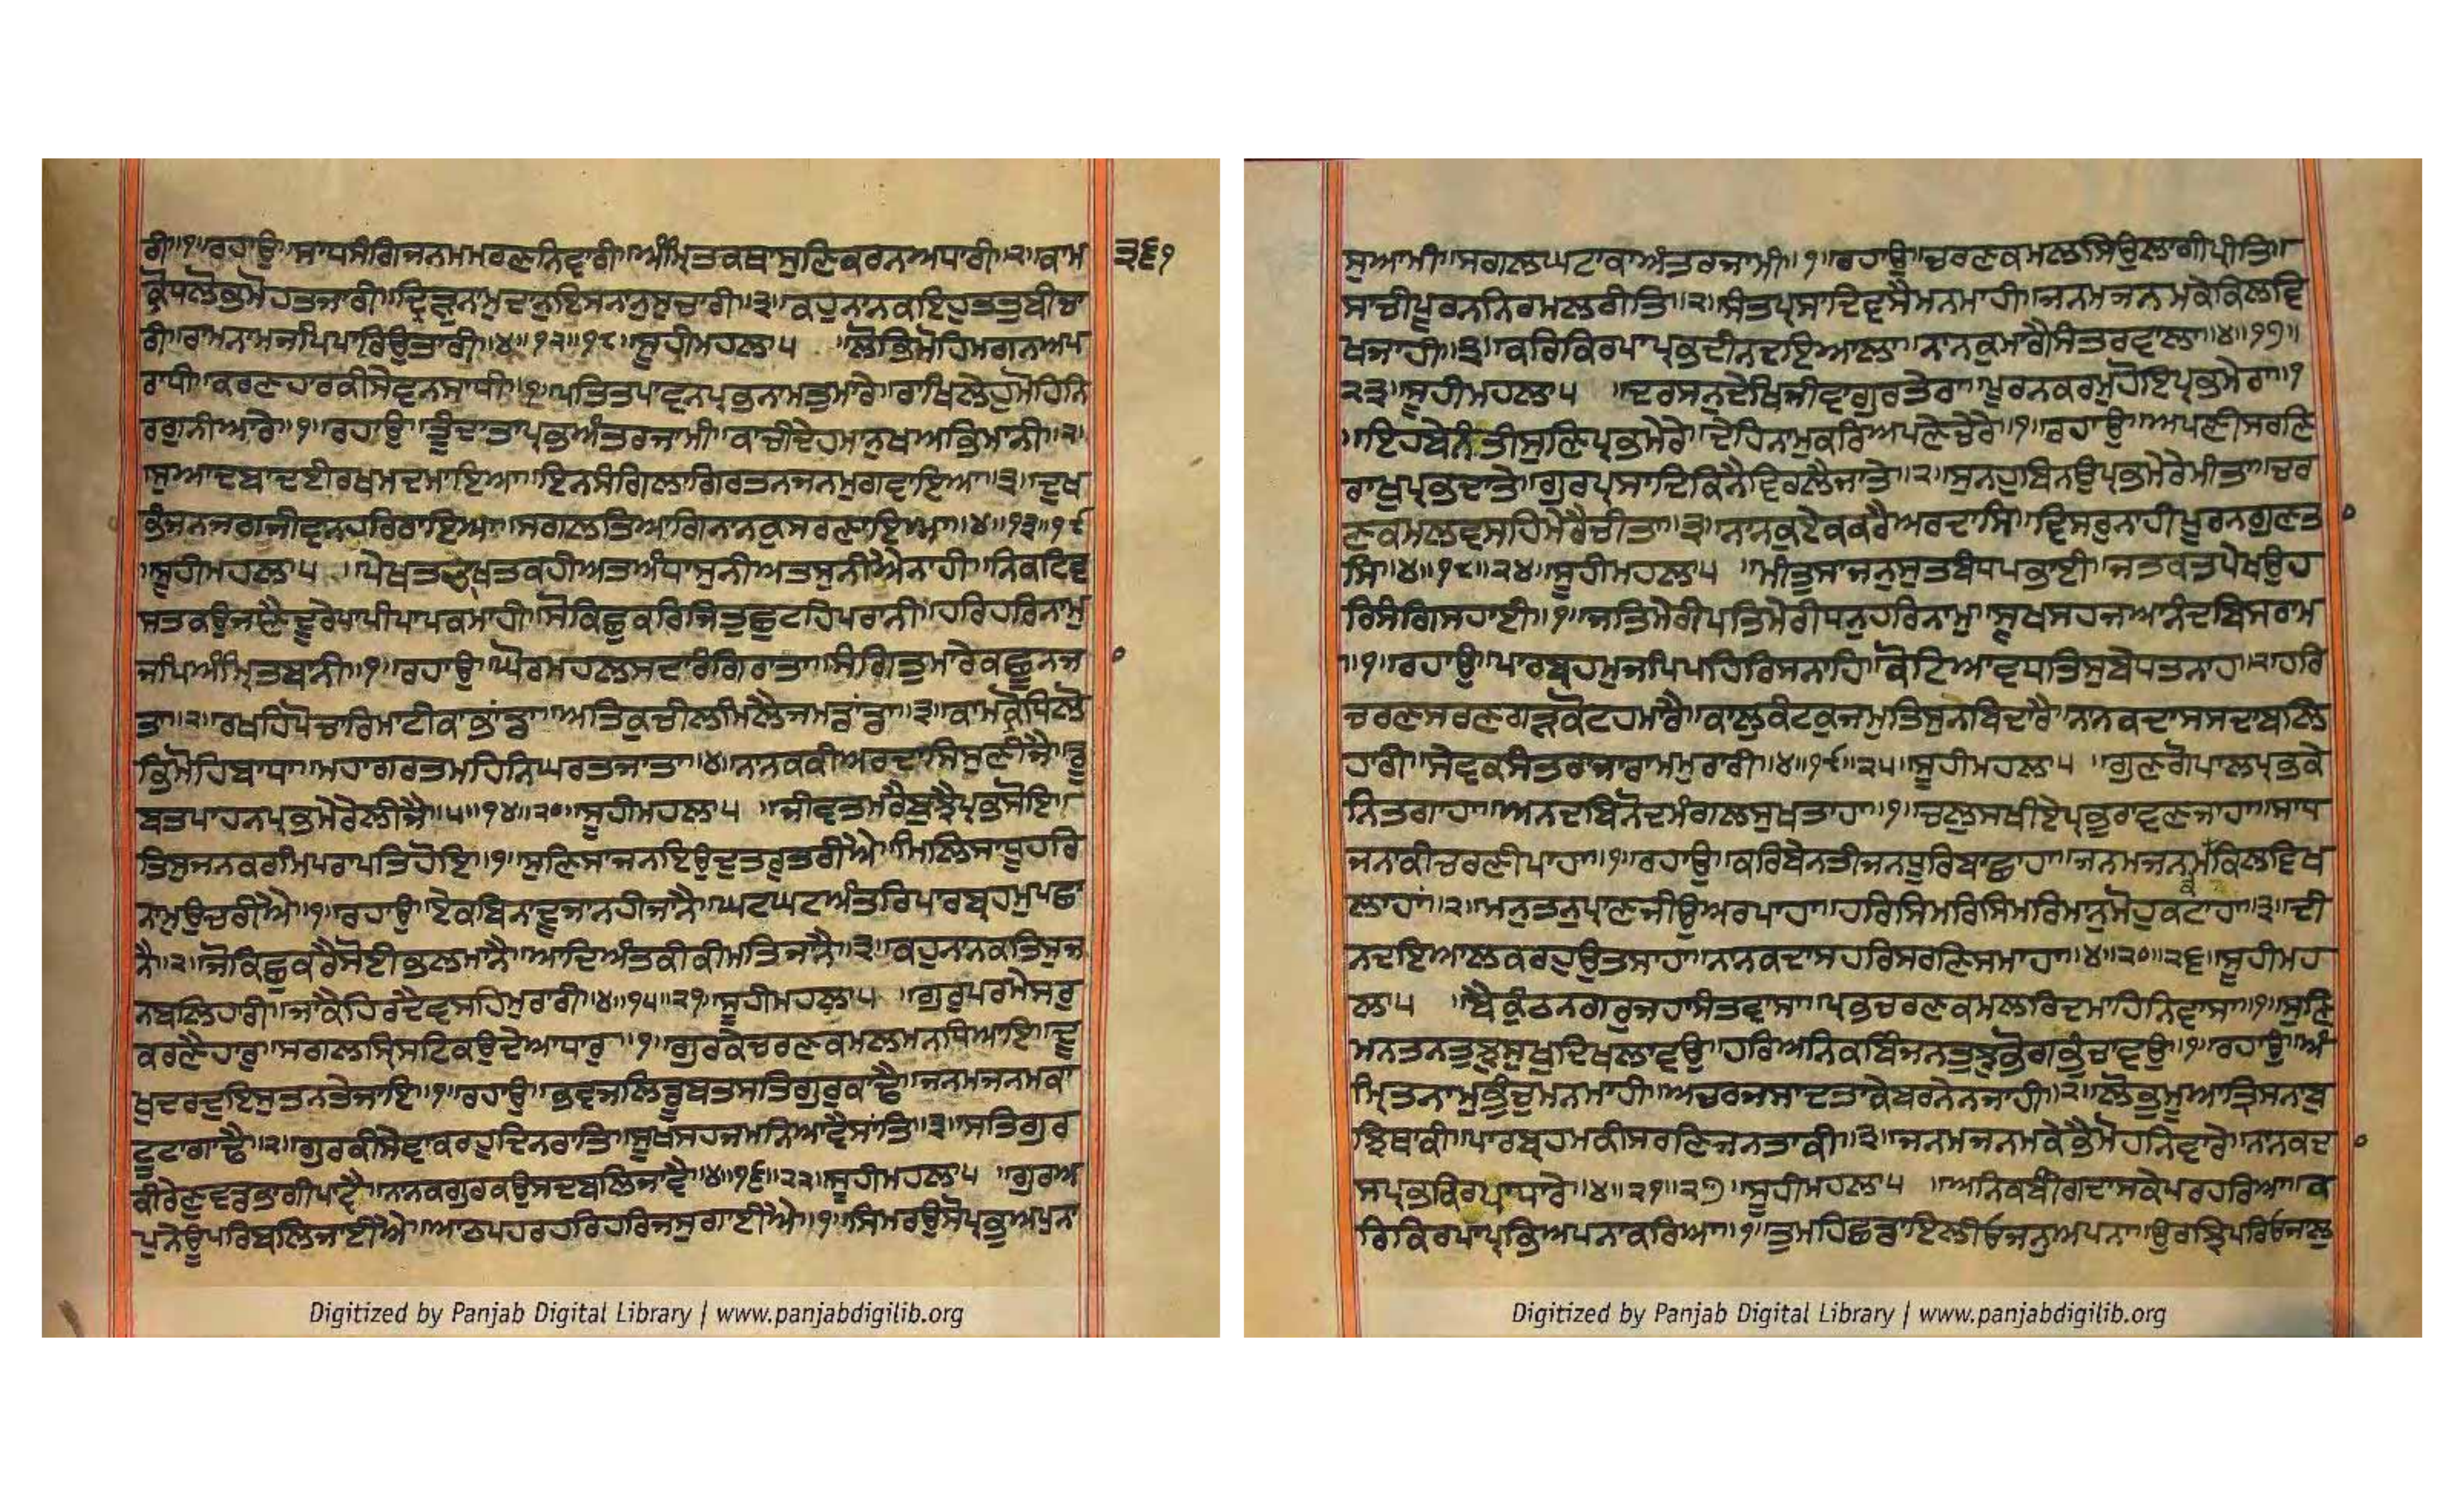 ਰੀ॥੧॥ਰਹਾਉ॥ਸਾਧਸੰਗਿਜਨਮਮਰਣਨਿਵਾਰੀ॥ਅੰਮ੍ਰਿਤਕਥਾਸੁਣਿਕਰਨਅਧਾਰੀ॥੨॥ਕਾਮ
ਕ੍ਰੋਧਲੋਭਮੋਹਤਜਾਰੀ॥ਦ੍ਰਿੜੁਨਾਮੁਦਾਨੁਇਸਨਾਨੁਸੁਚਾਰੀ॥੩॥ਕਹੁਨਾਨਕਇਹੁਤਤੁਬੀਚਾ
ਰੀ॥ਰਾਮਨਾਮਜਪਿਪਾਰਿਉਤਾਰੀ॥੪॥੧੨॥੧੮॥ਸੂਹੀਮਹਲਾ੫ ॥ਲੋਭਿਮੋਹਿਮਗਨਅਪ
ਰਾਧੀ॥ਕਰਣਹਾਰਕੀਸੇਵਨਸਾਧੀ॥੧॥ਪਤਿਤਪਾਵਨਪ੍ਰਭਨਾਮਤੁਮਾਰੇ॥ਰਾਖਿਲੇਹੁਮੋਹਿਨਿ
ਰਗੁਨੀਆਰੇ॥੧॥ਰਹਾਉ॥ਤੂੰਦਾਤਾਪ੍ਰਭਅੰਤਰਜਾਮੀ॥ਕਾਚੀਦੇਹਮਾਨੁਖਅਭਿਮਾਨੀ॥੨॥
ਸੁਆਦਬਾਦਈਰਖਮਦਮਾਇਆ॥ਇਨਸੰਗਿਲਾਗਿਰਤਨਜਨਮੁਗਵਾਇਆ॥੩॥ਦੁਖ
ਭੰਜਨਜਗਜੀਵਨਹਰਿਰਾਇਆ॥ਸਗਲਤਿਆਗਿਨਾਨਕੁਸਰਣਾਇਆ॥੪॥੧੩॥੧੯
॥ਸੂਹੀਮਹਲਾ੫ ॥ਪੇਖਤਚਾਖਤਕਹੀਅਤਅੰਧਾਸੁਨੀਅਤਸੁਨੀਐਨਾਹੀ॥ਨਿਕਟਿਵ
ਸਤਕਉਜਾਣੈਦੂਰੇਪਾਪੀਪਾਪਕਮਾਹੀ॥ਸੋਕਿਛੁਕਰਿਜਿਤੁਛੁਟਹਿਪਰਾਨੀ॥ਹਰਿਹਰਿਨਾਮੁ
ਜਪਿਅੰਮ੍ਰਿਤਬਾਨੀ॥੧॥ਰਹਾਉ॥ਘੋਰਮਹਲਸਦਾਰੰਗਿਰਾਤਾ॥ਸੰਗਿਤੁਮਾਰੇਕਛੂਨਜਾ
ਤਾ॥੨॥ਰਖਹਿਪੋਚਾਰਿਮਾਟੀਕਾਭਾਂਡਾ॥ਅਤਿਕੁਚੀਲਮਿਲੈਜਮਡਾਂਡਾ॥੩॥ਕਾਮਕ੍ਰੋਧਿਲੋ
ਭਿਮੋਹਿਬਾਧਾ॥ਮਹਾਗਰਤਮਹਿਨਿਘਰਤਜਾਤਾ॥੪॥ਨਾਨਕਕੀਅਰਦਾਸਿਸੁਣੀਜੈ॥ਡੂ
ਬਤਪਾਹਨਪ੍ਰਭਮੇਰੇਲੀਜੈ॥੫॥੧੪॥੨੦॥ਸੂਹੀਮਹਲਾ੫ ॥ਜੀਵਤਮਰੈਬੁਝੈਪ੍ਰਭਸੋਇ॥
ਤਿਸੁਜਨਕਰਮਿਪਰਾਪਤਿਹੋਇ॥੧॥ਸੁਣਿਸਾਜਨਇਉਦੁਤਰੁਤਰੀਐ॥ਮਿਲਿਸਾਧੂਹਰਿ
ਨਾਮੁਉਚਰੀਐ॥੧॥ਰਹਾਉ॥ਏਕਬਿਨਾਦੂਜਾਨਹੀਜਾਨੈ॥ਘਟਘਟਅੰਤਰਿਪਾਰਬ੍ਰਹਮੁਪਛਾ
ਨੈ॥੨॥ਜੋਕਿਛੁਕਰੈਸੋਈਭਲਮਾਨੈ॥ਆਦਿਅੰਤਕੀਕੀਮਤਿਜਾਨੈ॥੩॥ਕਹੁਨਾਨਕਤਿਸੁਜ
ਨਬਲਿਹਾਰੀ॥ਜਾਕੈਹਿਰਦੈਵਸਹਿਮੁਰਾਰੀ॥੪॥੧੫॥੨੧॥ਸੂਹੀਮਹਲਾ੫ ॥ਗੁਰੁਪਰਮੇਸਰੁ
ਕਰਣੈਹਾਰੁ॥ਸਗਲਸ੍ਰਿਸਟਿਕਉਦੇਆਧਾਰੁ॥੧॥ਗੁਰਕੇਚਰਣਕਮਲਮਨਧਿਆਇ॥ਦੂ
ਖੁਦਰਦੁਇਸੁਤਨਤੇਜਾਇ॥੧॥ਰਹਾਉ॥ਭਵਜਲਿਡੂਬਤਸਤਿਗੁਰੁਕਾਢੈ॥ਜਨਮਜਨਮਕਾ
ਟੂਟਾਗਾਢੈ॥੨॥ਗੁਰਕੀਸੇਵਾਕਰਹੁਦਿਨਰਾਤਿ॥ਸੂਖਸਹਜਮਨਿਆਵੈਸਾਂਤਿ॥੩॥ਸਤਿਗੁਰ
ਕੀਰੇਣੁਵਡਭਾਗੀਪਾਵੈ॥ਨਾਨਕਗੁਰਕਉਸਦਬਲਿਜਾਵੈ॥੪॥੧੬॥੨੨॥ਸੂਹੀਮਹਲਾ੫ ॥ਗੁਰਅ
ਪੁਨੇਊਪਰਿਬਲਿਜਾਈਐ॥ਆਠਪਹਰਹਰਿਹਰਿਜਸੁਗਾਈਐ॥੧॥ਸਿਮਰਉਸੋਪ੍ਰਭੁਅਪੁਨਾ
੩੬੧
Digitized by Panjab Digital Library | www.panjabdigilib.org
ਸੁਆਮੀ॥ਸਗਲਘਟਾਕਾਅੰਤਰਜਾਮੀ॥੧॥ਰਹਾਉ॥ਚਰਣਕਮਲਸਿਉਲਾਗੀਪ੍ਰੀਤਿ॥
ਸਾਚੀਪੂਰਨਨਿਰਮਲਰੀਤਿ॥੨॥ਸੰਤਪ੍ਰਸਾਦਿਵਸੈਮਨਮਾਹੀ॥ਜਨਮਜਨਮਕੇਕਿਲਵਿ
ਖਜਾਹੀ॥੩॥ਕਰਿਕਿਰਪਾਪ੍ਰਭਦੀਨਦਇਆਲਾ॥ਨਾਨਕੁਮਾਗੈਸੰਤਰਵਾਲਾ॥੪॥੧੭॥
੨੩॥ਸੂਹੀਮਹਲਾ੫ ॥ਦਰਸਨੁਦੇਖਿਜੀਵਾਗੁਰਤੇਰਾ॥ਪੂਰਨਕਰਮੁਹੋਇਪ੍ਰਭਮੇਰਾ॥੧
॥ਇਹਬੇਨੰਤੀਸੁਣਿਪ੍ਰਭਮੇਰੇ॥ਦੇਹਿਨਾਮੁਕਰਿਅਪਣੇਚੇਰੇ॥੧॥ਰਹਾਉ॥ਅਪਣੀਸਰਣਿ
ਰਾਖੁਪ੍ਰਭਦਾਤੇ॥ਗੁਰਪ੍ਰਸਾਦਿਕਿਨੈਵਿਰਲੈਜਾਤੇ॥੨॥ਸੁਨਹੁਬਿਨਉਪ੍ਰਭਮੇਰੇਮੀਤਾ॥ਚਰ
ਣਕਮਲਵਸਹਿਮੇਰੈਚੀਤਾ॥੩॥ਨਾਨਕੁਏਕਕਰੈਅਰਦਾਸਿ॥ਵਿਸਰੁਨਾਹੀਪੂਰਨਗੁਣਤਾ
ਸਿ॥੪॥੧੮॥੨੪॥ਸੂਹੀਮਹਲਾ੫ ॥ਮੀਤੁਸਾਜਨੁਸੁਤਬੰਧਪਭਾਈ॥ਜਤਕਤਪੇਖਉਹ
ਰਿਸੰਗਿਸਹਾਈ॥੧॥ਜਤਿਮੇਰੀਪਤਿਮੇਰੀਧਨੁਹਰਿਨਾਮੁ॥ਸੂਖਸਹਜਆਨੰਦਬਿਸਰਾਮ
॥੧॥ਰਹਾਉ॥ਪਾਰਬ੍ਰਹਮੁਜਪਿਪਹਿਰਿਸਨਾਹ॥ਕੋਟਿਆਵਧਤਿਸੁਬੇਧਤਨਾਹਿ॥੨॥ਹਰਿ
ਚਰਣਸਰਣਗੜਕੋਟਹਮਾਰੈ॥ਕਾਲੁਕੰਟਕੁਜਮੁਤਿਸੁਨਬਿਦਾਰੈ॥ਨਾਨਕਦਾਸਸਦਾਬਲਿ
ਹਾਰੀ॥ਸੇਵਕਸੰਤਰਾਜਾਰਾਮਮੁਰਾਰੀ॥੪॥੧੯॥੨੫॥ਸੂਹੀਮਹਲਾ੫ ॥ਗੁਣਗੋਪਾਲਪ੍ਰਭਕੇ
ਨਿਤਗਾਹਾ॥ਅਨਦਬਿਨੋਦਮੰਗਲਸੁਖਤਾਹਾ॥੧॥ਚਲੁਸਖੀਏਪ੍ਰਭੁਰਾਵਣਜਾਹਾ॥ਸਾਧ
ਜਨਾਕੀਚਰਣੀਪਾਹਾ॥੧॥ਰਹਾਉ॥ਕਰਿਬੇਨਤੀਜਨਧੂਰਿਬਾਛਾਹਾ॥ਜਨਮਜਨਮਕੇਕਿਲਵਿਖ
ਲਾਹਾਂ॥੨॥ਮਨੁਤਨੁਪ੍ਰਾਣਜੀਉਅਰਪਾਹਾ॥ਹਰਿਸਿਮਰਿਸਿਮਰਿਮਾਨੁਮੋਹੁਕਟਾਹਾ॥੩॥ਦੀ
ਨਦਇਆਲਕਰਹੁਉਤਸਾਹਾ॥ਨਾਨਕਦਾਸਹਰਿਸਰਣਿਸਮਾਹਾ॥੪॥੨੦॥੨੬॥ਸੂਹੀਮਹ
ਲਾ੫ ॥ਬੈਕੁੰਠਨਗਰੁਜਹਾਸੰਤਵਾਸਾ॥ਪ੍ਰਭਚਰਣਕਮਲਰਿਦਮਾਹਿਨਿਵਾਸਾ॥੧॥ਸੁਣਿ
ਮਨਤਨਤੁਝੁਸੁਖੁਦਿਖਲਾਵਉ॥ਹਰਿਅਨਿਕਬਿੰਜਨਤੁਝੁਭੋਗਭੁੰਚਾਵਉ॥੧॥ਰਹਾਉ॥ਅੰ
ਮ੍ਰਿਤਨਾਮੁਭੁੰਚੁਮਨਮਾਹੀ॥ਅਚਰਜਸਾਦਤਾਕੇਬਰਨੇਨਜਾਹੀ॥੨॥ਲੋਭੁਮੂਆਤ੍ਰਿਸਨਾਬੁ
ਝਿਥਾਕੀ॥ਪਾਰਬ੍ਰਹਮਕੀਸਰਣਿਜਨਤਾਕੀ॥੩॥ਜਨਮਜਨਮਕੇਭੈਮੋਹਨਿਵਾਰੇ॥ਨਾਨਕਦਾ
ਸਪ੍ਰਭਕਿਰਪਾਧਾਰੇ॥੪॥੨੧॥੨੭॥ਸੂਹੀਮਹਲਾ੫ ॥ਅਨਿਕਬੀਂਗਦਾਸਕੇਪਰਹਰਿਆ॥ਕ
ਰਿਕਿਰਪਾਪ੍ਰਭਿਅਪਨਾਕਰਿਆ॥੧॥ਤੁਮਹਿਛਡਾਇਲੀਓਜਨੁਅਪਨਾ॥ਉਰਝਿਪਰਿਓਜਾਲੁ
Digitized by Panjab Digital Library | www.panjabdigilib.org